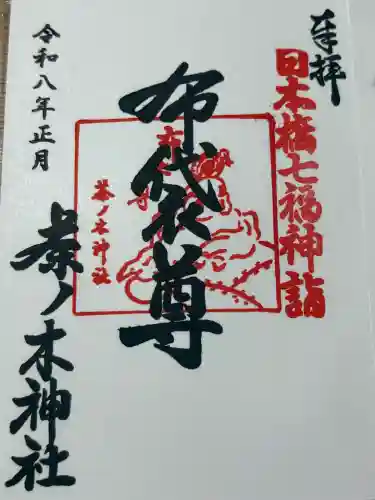 奉拝
日本橋七福神詣
布袋尊
布袋尊
茶ノ木神社
令和八年正月
茶ノ木神社